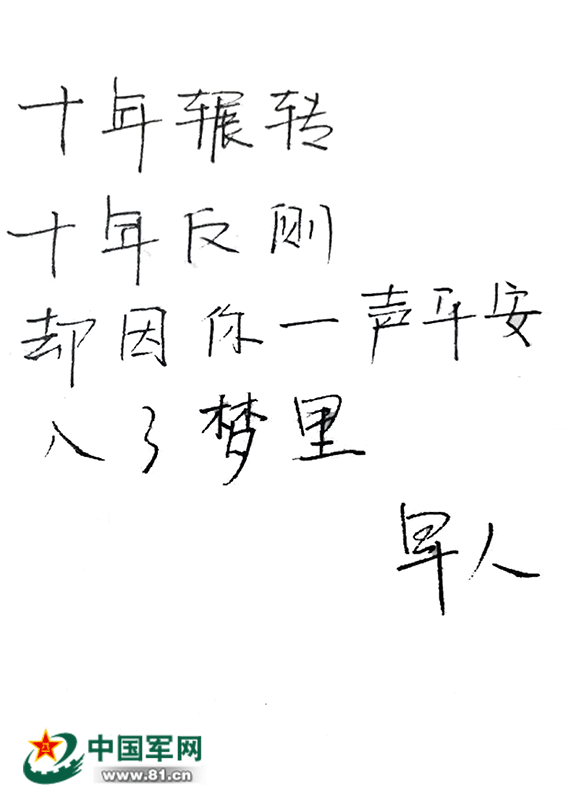 十年辗转
十年反则
却因你一声平安
入了梦里
早人
中国军网
www.81.cn